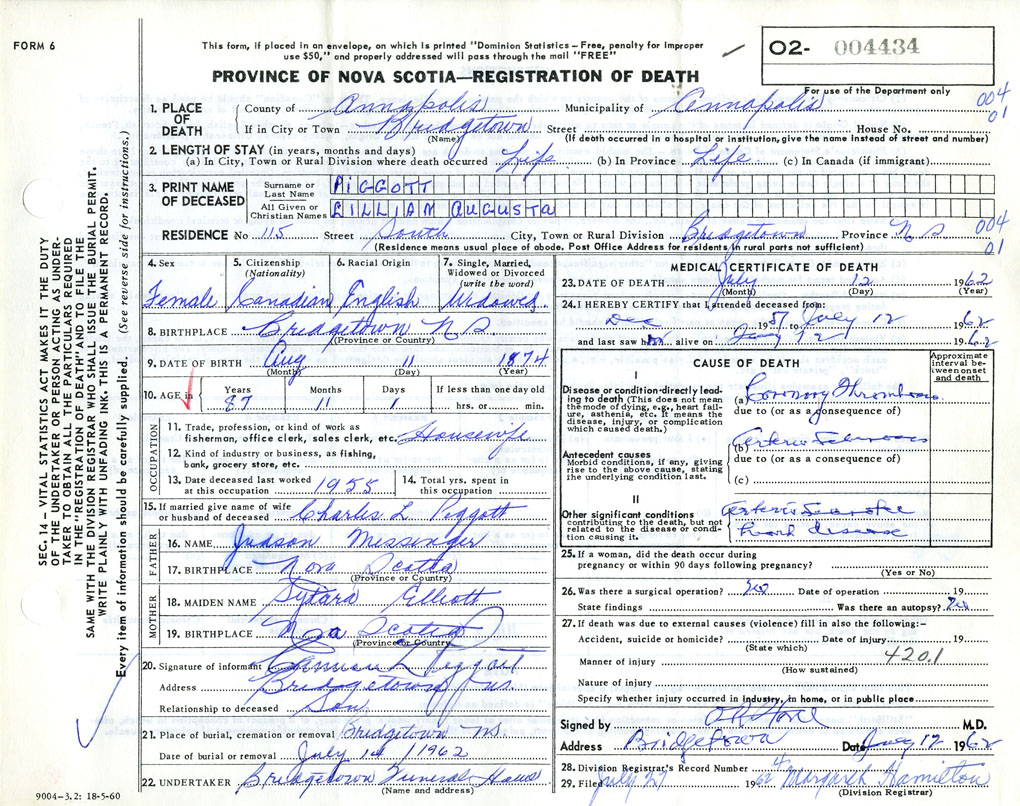 FORM 6
This form, if placed in an envelope, on which is printed "Dominion Statistics – Free, penalty for improper
use $50," and properly addressed will pass through the mail "FREE"
PROVINCE OF NOVA SCOTIA—REGISTRATION OF DEATH
O2- 004434
For use of the Department only
004
01
1. PLACE OF DEATH County of Annapolis Municipality of Annapolis
If in City or Town Bridgetown Street House No.
(Name) (If death occurred in a hospital or institution, give the name instead of street and number)
2. LENGTH OF STAY (in years, months and days)
(a) In City, Town or Rural Division where death occurred Life (b) In Province Life (c) In Canada (if immigrant)
3. PRINT NAME OF DECEASED
Surname or Last Name PIGGOTT
All Given or Christian Names LILLIAM AUGUSTA
RESIDENCE No 115 Street South City, Town or Rural Division Bridgetown Province N S
004
01
(Residence means usual place of abode. Post Office Address for residents in rural parts not sufficient)
4. Sex Female
5. Citizenship (Nationality) Canadian
6. Racial Origin English
7. Single, Married, Widowed or Divorced (write the word) Widowed
8. BIRTHPLACE Bridgetown N S
(Province or Country)
9. DATE OF BIRTH Aug 11 1874
(Month) (Day) (Year)
10. AGE in Years Months Days If less than one day old
87 11 1 hrs. or min.
OCCUPATION
11. Trade, profession, or kind of work as
fisherman, office clerk, sales clerk, etc. Housewife
12. Kind of industry or business, as fishing,
bank, grocery store, etc.
13. Date deceased last worked
at this occupation 1955
14. Total yrs. spent in
this occupation
15. If married give name of wife
or husband of deceased Charles L Piggott
FATHER
16. NAME Judson Messinger
17. BIRTHPLACE Nova Scotia
(Province or Country)
MOTHER
18. MAIDEN NAME Elliott
19. BIRTHPLACE Nova Scotia
(Province or Country)
20. Signature of informant L Piggott
Address Bridgetown NS.
Relationship to deceased Son
21. Place of burial, cremation or removal Bridgetown NS.
Date of burial or removal July 14 1962
22. UNDERTAKER Bridgetown Funeral Home
(Name and address)
9004–3.2: 18-5-60
SEC. 14 – VITAL STATISTICS ACT MAKES IT THE DUTY
OF THE UNDERTAKER OR PERSON ACTING AS UNDER-
TAKER TO OBTAIN ALL THE PARTICULARS REQUIRED
IN THE "REGISTRATION OF DEATH" AND TO FILE THE
SAME WITH THE DIVISION REGISTRAR WHO SHALL ISSUE THE BURIAL PERMIT.
WRITE PLAINLY WITH UNFADING INK. THIS IS A PERMANENT RECORD.
Every item of information should be carefully supplied. (See reverse side for instructions.)
MEDICAL CERTIFICATE OF DEATH
23. DATE OF DEATH July 12 1962
(Month) (Day) (Year)
24. I HEREBY CERTIFY that I attended deceased from:
Dec 19 to July 12 1962
and last saw h alive on 12 1962
CAUSE OF DEATH
Approximate interval between onset and death
I
Disease or condition directly lead-
ing to death (This does not mean
the mode of dying, e.g., heart fail-
ure, asthenia, etc. It means the
disease, injury, or complication
which caused death.)
(a) Coronary Thrombosis
due to (or as a consequence of)
Antecedent causes
Morbid conditions, if any, giving
rise to the above cause, stating
the underlying condition last.
(b)
due to (or as a consequence of)
(c)
II
Other significant conditions
contributing to the death, but not
related to the disease or condi-
tion causing it.
heart disease
25. If a woman, did the death occur during
pregnancy or within 90 days following pregnancy?
(Yes or No)
26. Was there a surgical operation? No Date of operation 19
State findings Was there an autopsy? No
27. If death was due to external causes (violence) fill in also the following:–
Accident, suicide or homicide? Date of injury 19
(State which)
4201
Manner of injury
(How sustained)
Nature of injury
Specify whether injury occurred in industry, in home, or in public place
Signed by M.D.
Address Bridgetown Date July 12 1962
28. Division Registrar's Record Number 4
29. Filed July 27 1962 Margaret Hamilton
(Division Registrar)